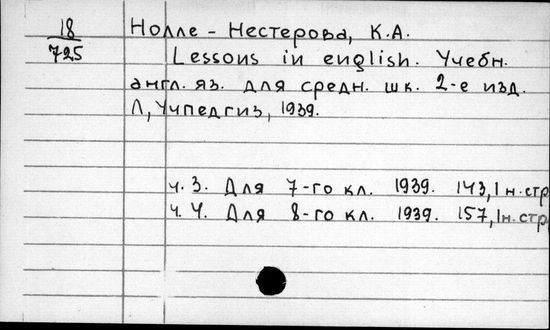 18
725
Нолле - Нестерова, К.А.
Lessons in english. Учебн.
англ. яз. для средн. шк. 2-е изд.
Л, Учпедгиз, 1939.
ч. 3. Для 7-го кл. 1939. 143, 1 н. стр
ч. 4. Для 8-го кл. 1939. 157, 1 н. стр